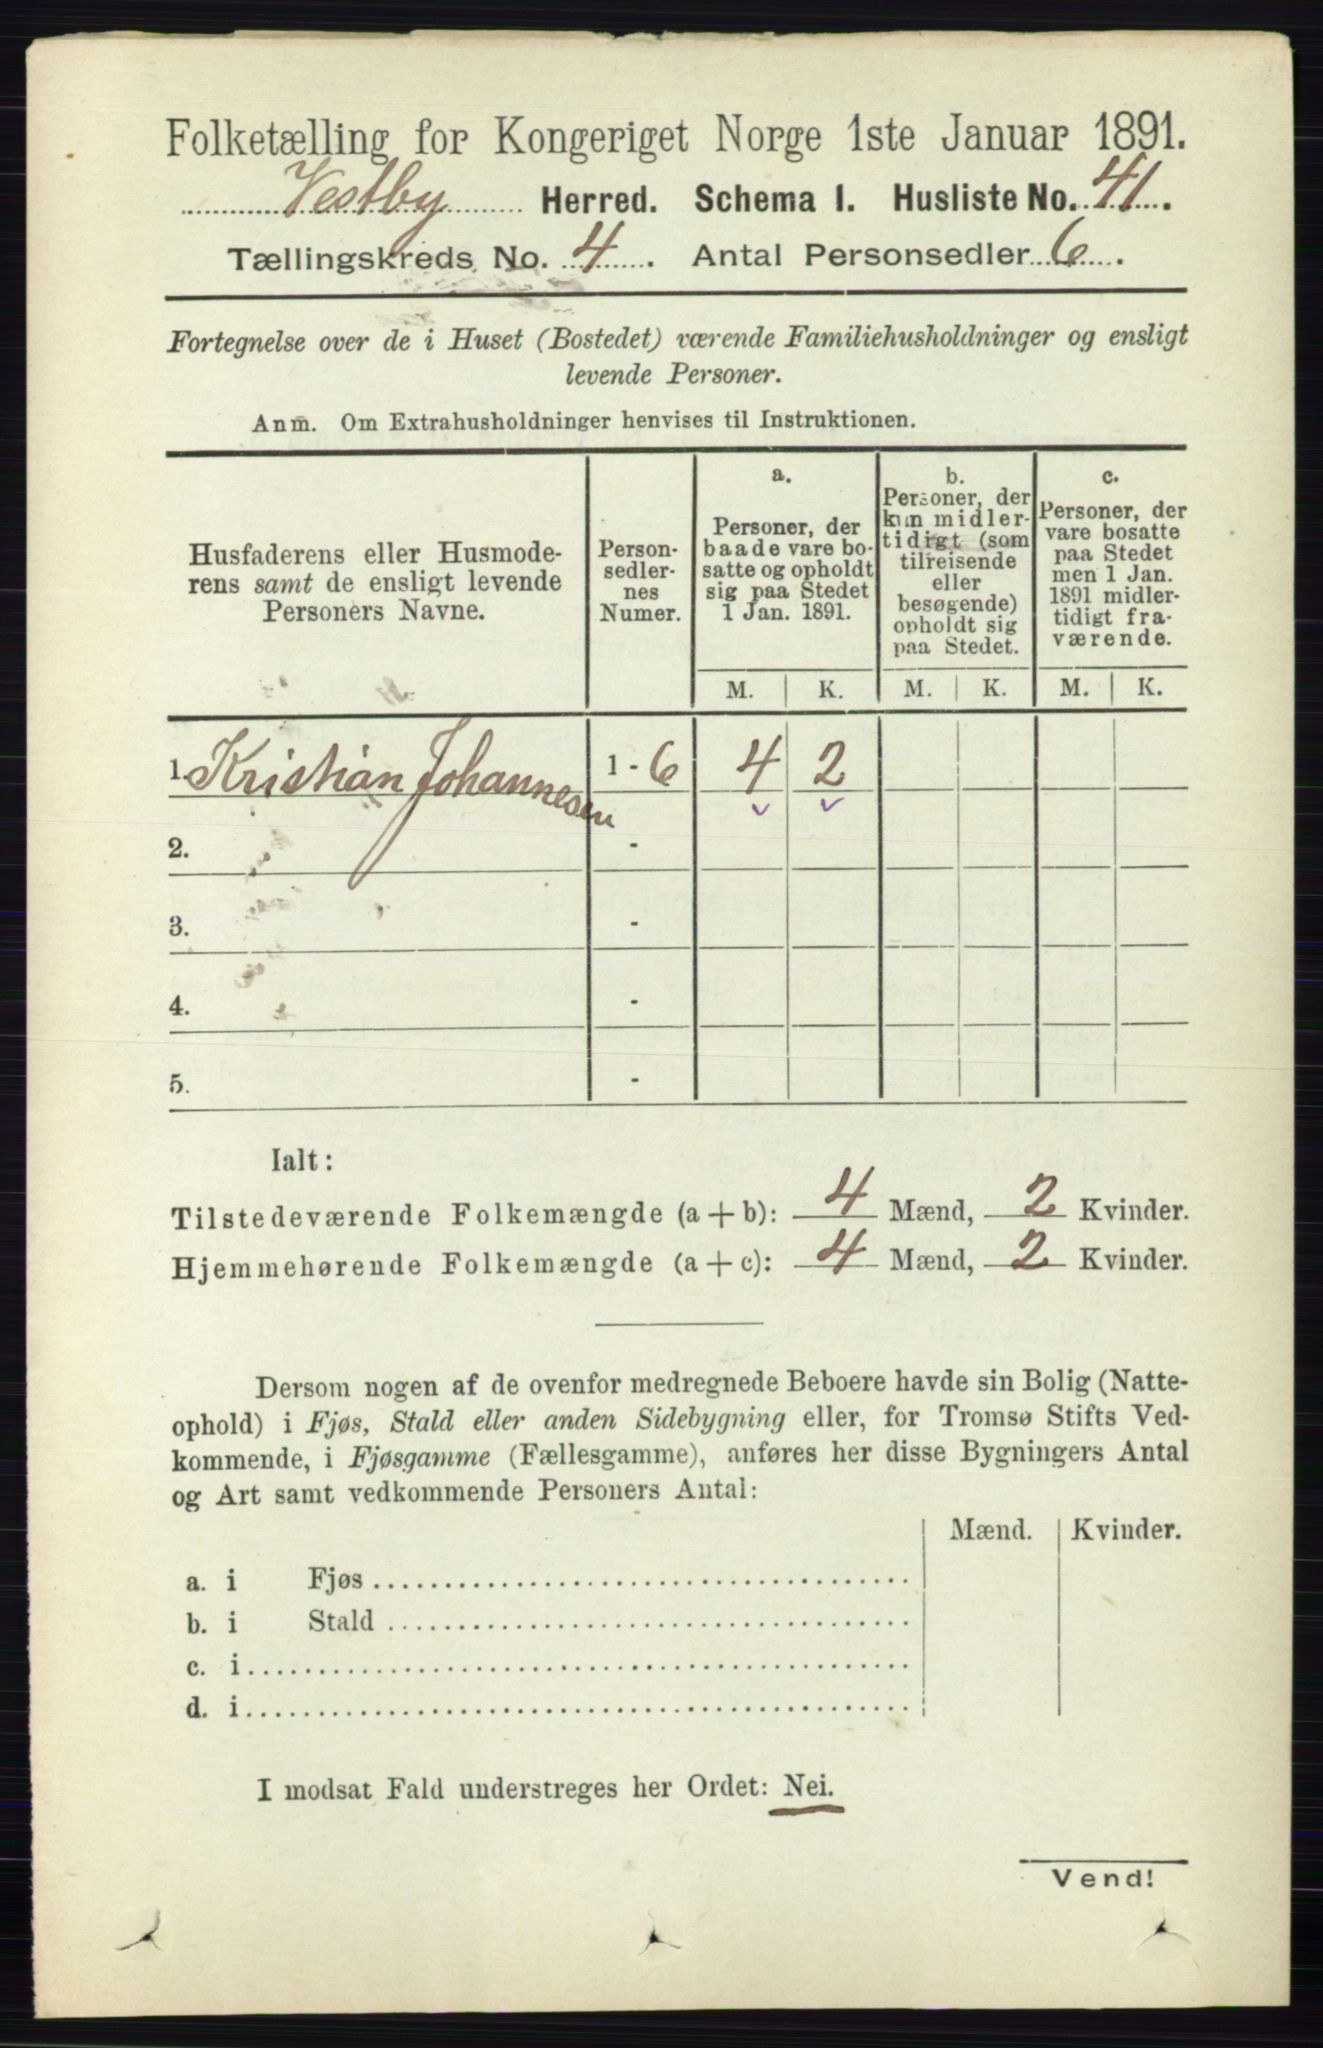 Folketælling for Kongeriget Norge 1ste Januar 1891.
Vestby Herred. Schema 1. Husliste No. 41.
Tællingskreds No. 4. Antal Personsedler 6.
Fortegnelse over de i Huset (Bostedet) værende Familiehusholdninger og ensligt
levende Personer.
Anm. Om Extrahusholdninger henvises til Instruktionen.
Husfaderens eller Husmode-
rens samt de ensligt levende
Personers Navne.
Person-
sedler-
nes
Numer.
a.
Personer, der
baade vare bo-
satte og opholdt
sig paa Stedet
1 Jan. 1891.
b.
Personer, der
kun midler-
tidigt (som
tilreisende
eller
besøgende)
opholdt sig
paa Stedet.
c.
Personer, der
vare bosatte
paa Stedet
men 1 Jan.
1891 midler-
tidigt fra-
værende.
M. K. M. K. M. K.
1. Kristian Johannesen 1 - 6 4 2
2. -
3. -
4. -
5. -
Ialt:
Tilstedeværende Folkemængde (a + b): 4 Mænd, 2 Kvinder.
Hjemmehørende Folkemængde (a + c): 4 Mænd, 2 Kvinder.
Dersom nogen af de ovenfor medregnede Beboere havde sin Bolig (Natte-
ophold) i Fjøs, Stald eller anden Sidebygning eller, for Tromsø Stifts Ved-
kommende, i Fjøsgamme (Fællesgamme), anføres her disse Bygningers Antal
og Art samt vedkommende Personers Antal:
Mænd. Kvinder.
a. i Fjøs
b. i Stald
c. i
d. i
I modsat Fald understreges her Ordet: Nei.
Vend!